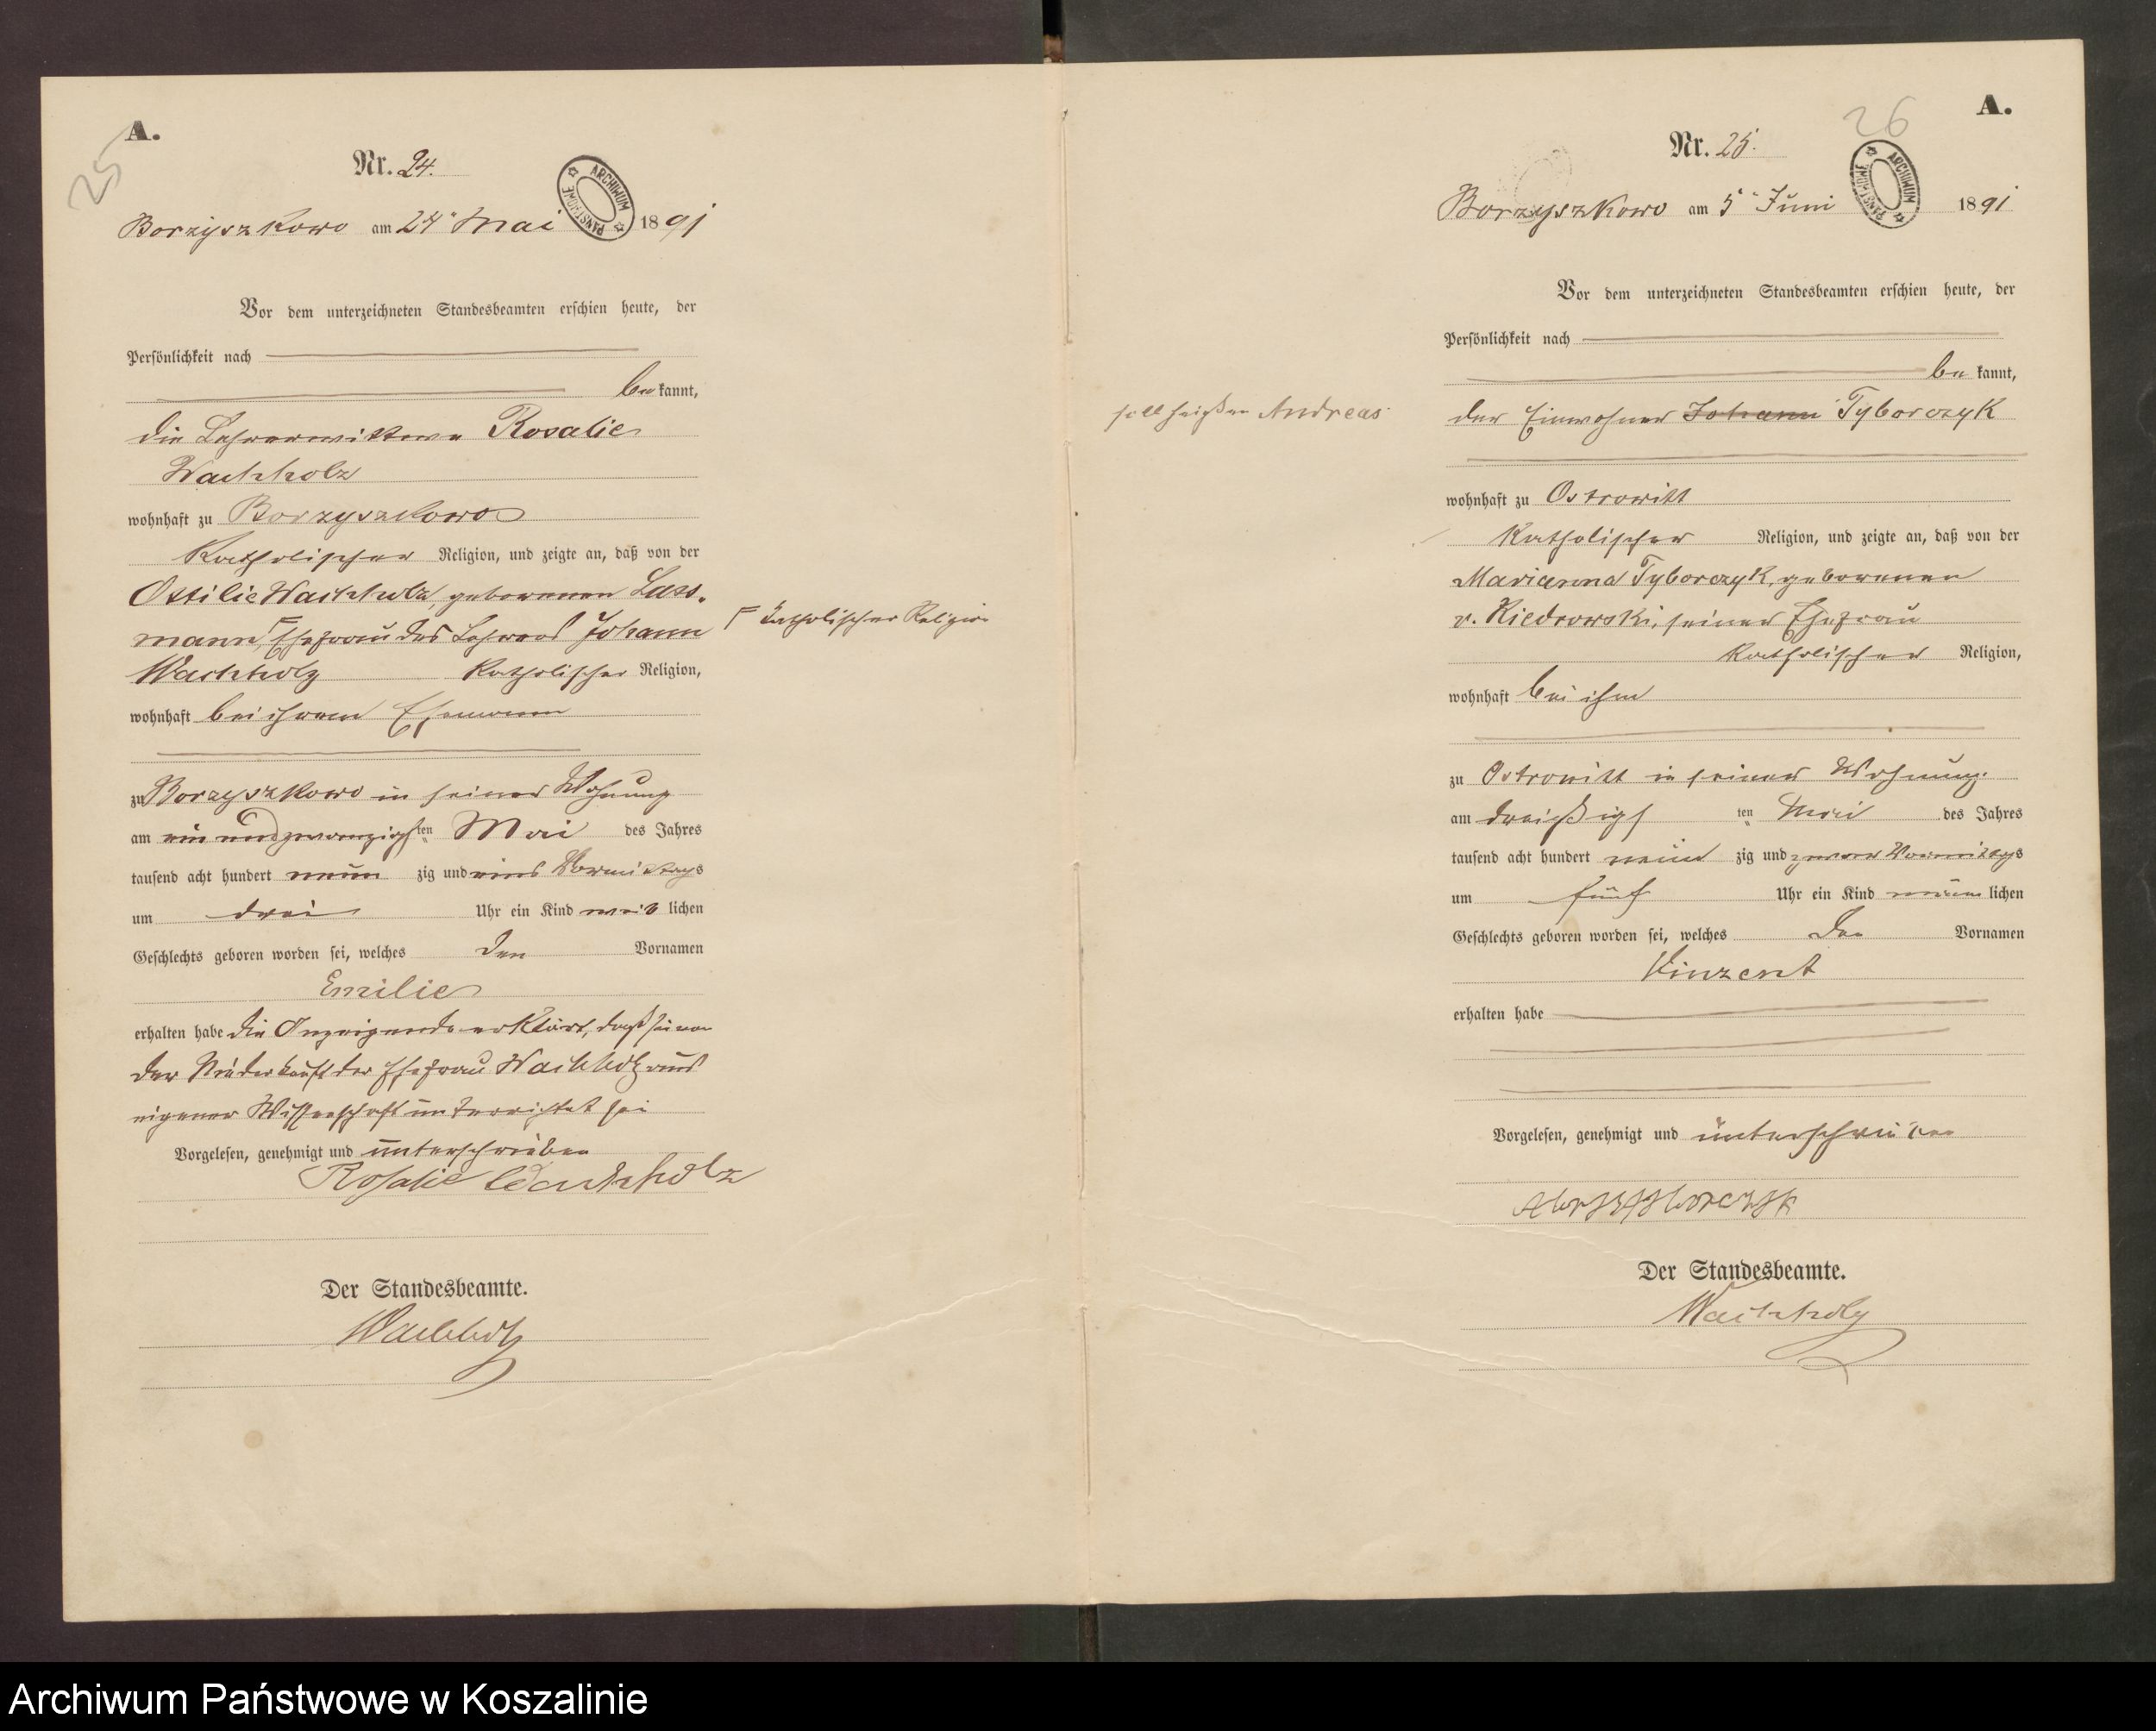 A.
25
Nr. 24.
ARCHIWUM PAŃSTWOWE
Borzyszkowo am 24" Mai 1891
Vor dem unterzeichneten Standesbeamten erschien heute, der
Persönlichkeit nach
be kannt,
die Lehrerwittwe Rosalie
Wachholz
wohnhaft zu Borzyszkowo
Katholischer Religion, und zeigte an, daß von der
Ottilie Wachholz, geborenen Lass-
mann, Ehefrau des Lehrers Johann
Katholischer Religion
Wachholz Katholischer Religion,
wohnhaft bei ihrem Ehemann
zu Borzyszkowo in seiner Wohnung
am ein und zwanzigsten Mai des Jahres
tausend acht hundert neun zig und eins Vormittags
um drei Uhr ein Kind weib lichen
Geschlechts geboren worden sei, welches den Vornamen
Emilie
erhalten habe die Anzeigende erklärt, daß sie von
der Niederkunft der Ehefrau Wachholz aus
eigener Wissenschaft unterrichtet sei
Vorgelesen, genehmigt und unterschrieben
Rosalie Wachholz
Der Standesbeamte.
Wachholz
A.
26
Nr. 25.
ARCHIWUM PAŃSTWOWE
Borzyszkowo am 5" Juni 1891
Vor dem unterzeichneten Standesbeamten erschien heute, der
Persönlichkeit nach
be kannt,
soll heißen Andreas
der Einwohner Johann Tyborczyk
wohnhaft zu Ostrowitt
Katholischer Religion, und zeigte an, daß von der
Marianna Tyborczyk, geborenen
v. Kiedrowski, seiner Ehefrau
Katholischer Religion,
wohnhaft bei ihm
zu Ostrowitt in seiner Wohnung
am dreißigs ten Mai des Jahres
tausend acht hundert neun zig und Vormittags
um fünf Uhr ein Kind männ lichen
Geschlechts geboren worden sei, welches den Vornamen
Vinzent
erhalten habe
Vorgelesen, genehmigt und unterschrieben
Der Standesbeamte.
Wachholz
Archiwum Państwowe w Koszalinie